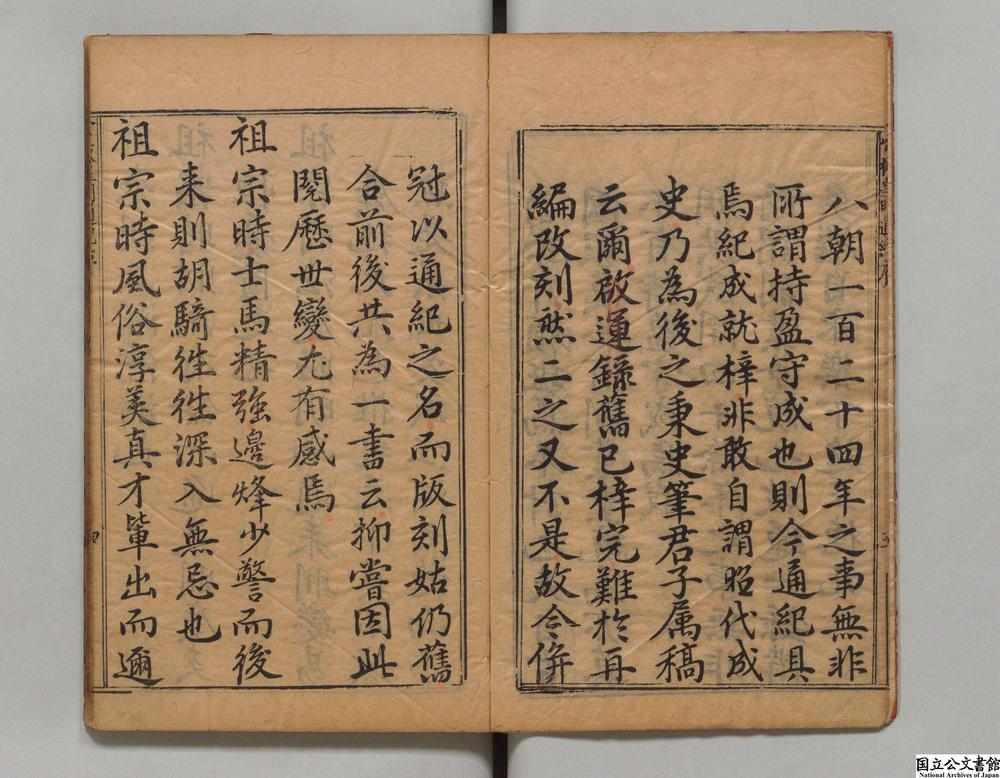 八朝一百二十四年之事無非
所謂持盈守成也則今通紀具
焉紀成就梓非敢自謂昭代成
史乃為後之秉史筆君子属稿
云爾啟運錄舊已梓完難於再
編改刻然二之又不是故今併
冠以通紀之名而版刻姑仍舊
合前後共為一書云抑嘗因此
閱歷世變尤有感焉
祖宗時士馬精強邊烽少警而後
来則胡騎徃徃深入無忌也
祖宗時風俗淳美真才軰出而邇
国立公文書館
National Archives of Japan